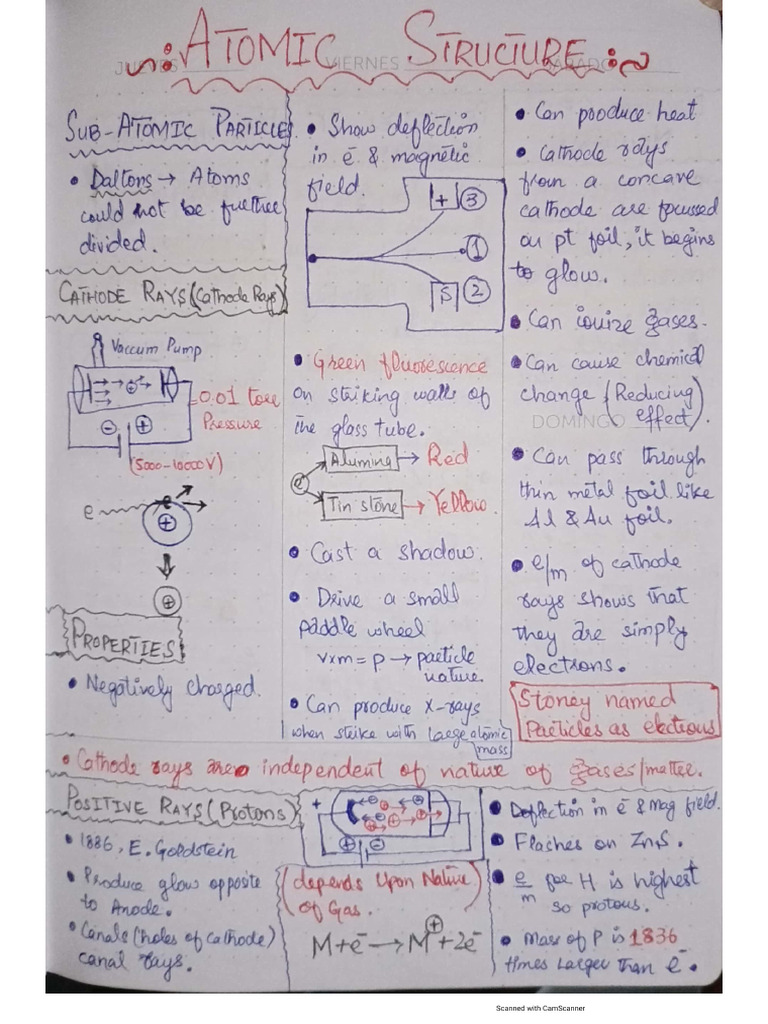 ATOMIC STRUCTURE
JUEVES
VIERNES
SUB-ATOMIC PARTICLES
• Daltons → Atoms
could not be further
divided.
CATHODE RAYS (Cathode Rays)
Vaccum Pump
0.01 torr
Pressure
(5000-10000V)
e
PROPERTIES
• Negatively charged.
• Show deflection
in ē & magnetic
field.
+ ③
①
S ②
• Green fluorescence
on striking walls of
the glass tube.
e
Alumina → Red
Tin stone → Yellow.
• Cast a shadow.
• Drive a small
paddle wheel
v×m = p → particle
nature.
• Can produce X-rays
when strike with large atomic
mass
• Can produce heat
• Cathode rays
from a concave
cathode are focussed
on pt foil, it begins
to glow.
• Can ionize gases.
• Can cause chemical
change (Reducing
effect).
DOMINGO
• Can pass through
thin metal foil like
Al & Au foil.
• e/m of cathode
rays shows that
they are simply
electrons.
Stoney named
Particles as electrons
• Cathode rays are independent of nature of gases/matter.
POSITIVE RAYS (Protons)
• 1886, E. Goldstein
• Produce glow opposite
to Anode.
• Canals (holes of cathode)
canal rays.
(depends Upon Nature
of Gas.)
M + ē → M⊕ + 2ē
• Deflection in ē & mag field.
• Flashes on ZnS.
• e/m for H is highest
so protons.
• Mass of P is 1836
times larger than ē.
Scanned with CamScanner